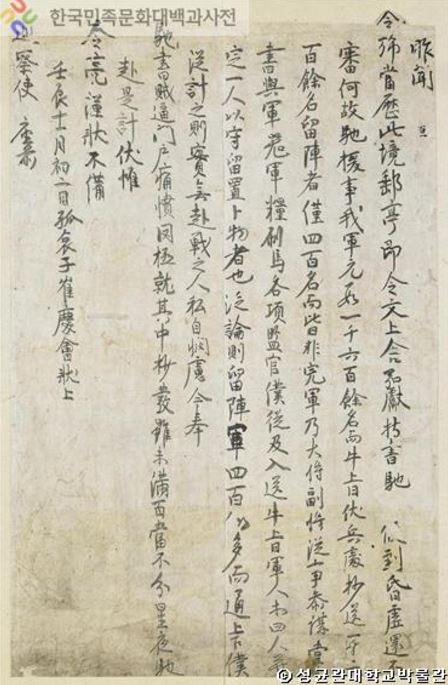 한국민족문화대백과사전
昨聞
令斾當歷此境郵亭卽令文上舍弘獻持書馳 似到昏虛還不
審何故馳援事我軍元數一千六百餘名而牛上日伏兵處抄送一千二
百餘名留陣者僅四百名而此日非完軍乃大將副將從事參謀掌
書與軍器軍糧刷馬各項監官僕從及入送牛上日軍人木四人
定一人以守留置卜物者也泛論則留陣軍四百似多而通上下僕
從計之則實無赴戰之人私自悶慮今奉
馳書賊逼門戶痛憤罔極就其中抄發雖未滿百當不分星夜馳
赴是計伏惟
令亮謹狀不備
壬辰十一月初二日孤哀子崔慶會狀上
巡察使
ⓒ성균관대학교박물관